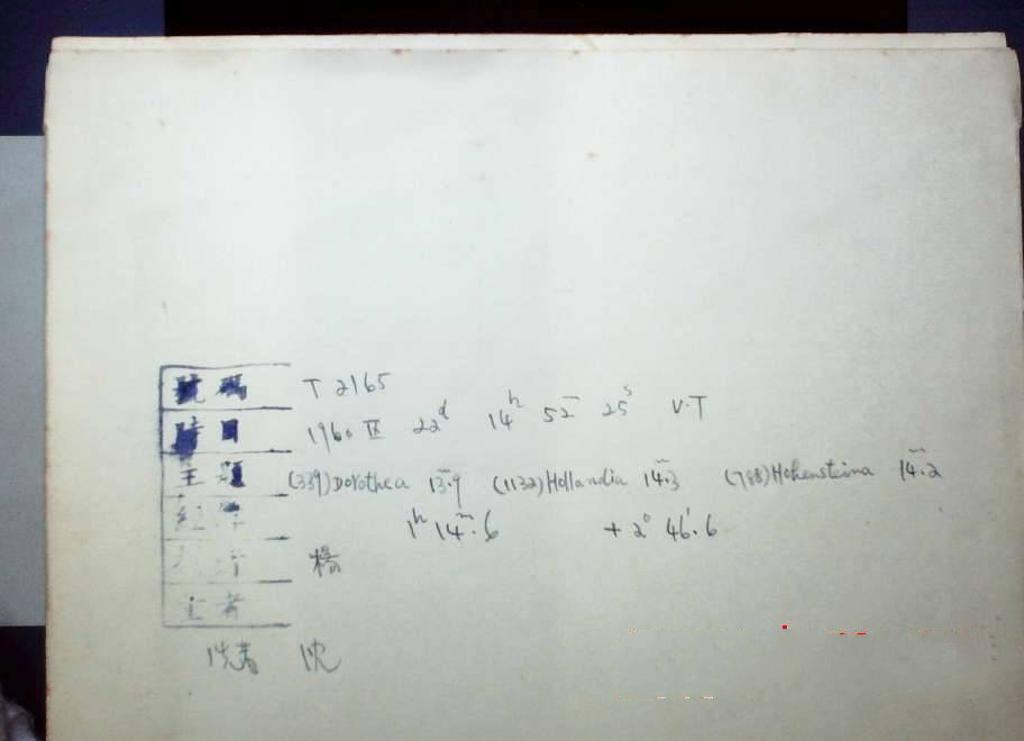 號碼 T 2165
時日 1960 IX 22d 14h 52m 25s U.T
主題 (339) Dorothea 13m.9 (1132) Hollandia 14m.3 (788) Hohensteina 14m.2
1h 14m.6 +2° 46'.6
楊
沈